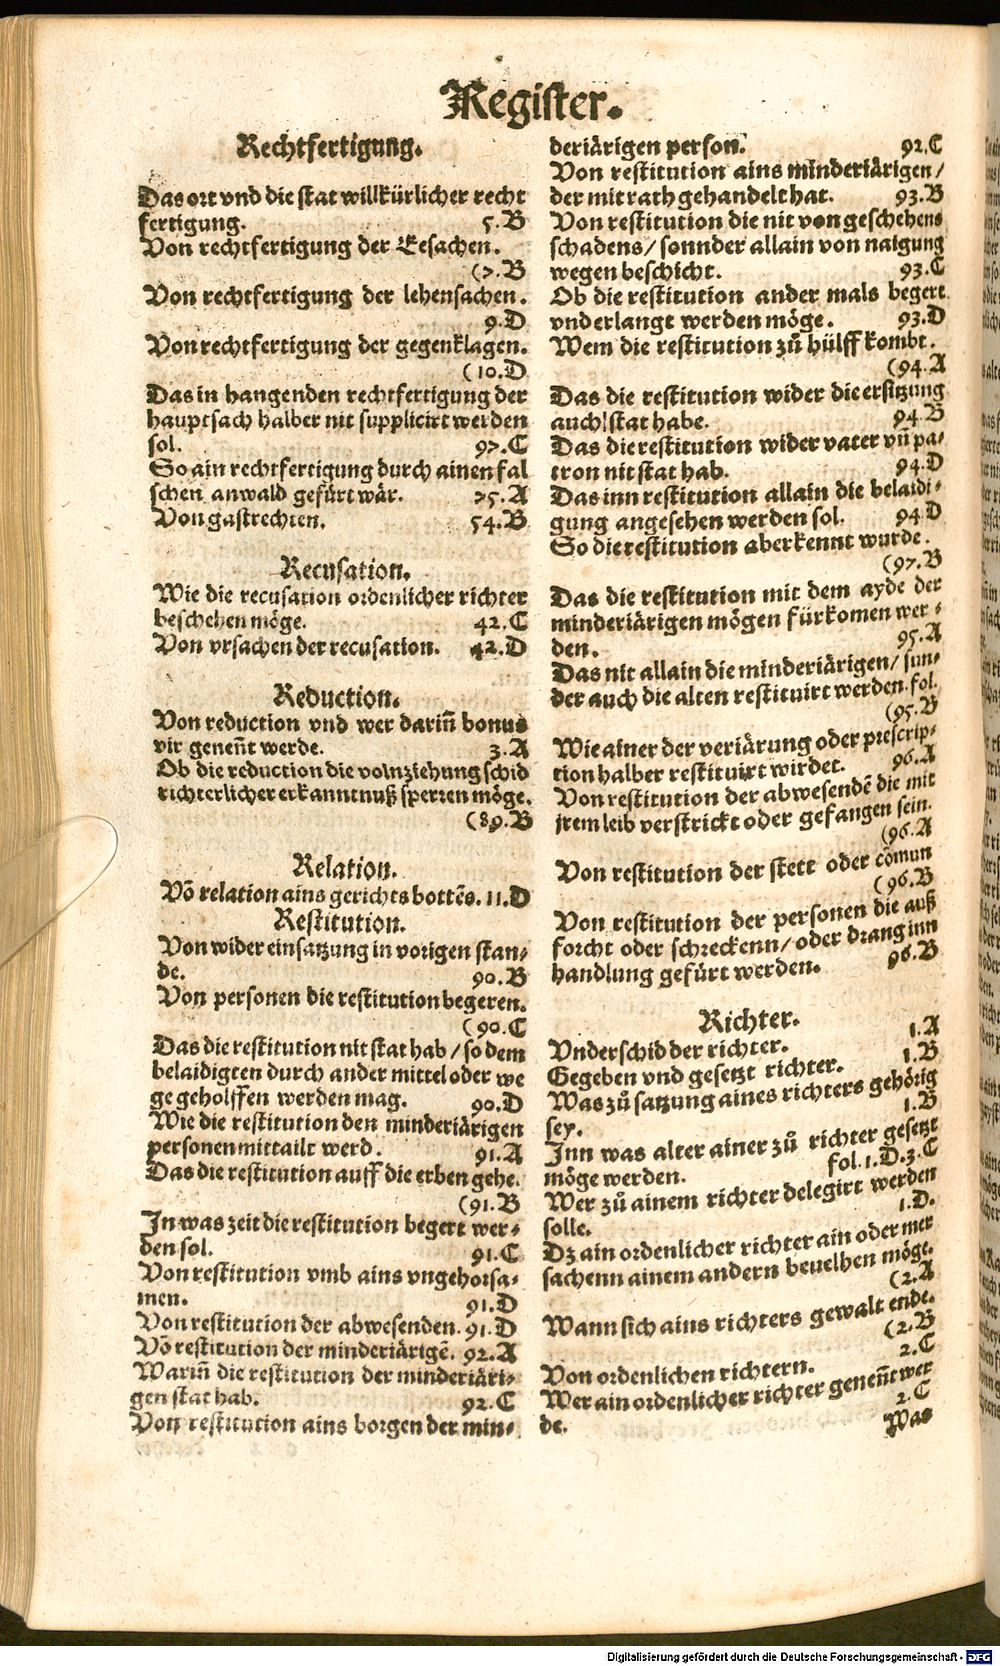 Register.
Rechtfertigung.
Das ort vnd die stat willkürlicher recht
fertigung. 5.B
Von rechtfertigung der Eesachen.
(7.B
Von rechtfertigung der lehensachen.
9.D
Von rechtfertigung der gegenklagen.
(10.D
Das in hangenden rechtfertigung der
hauptsach halber nit supplicirt werden
sol. 97.C
So ain rechtfertigung durch ainen fal
schen anwald gefürt wär. 75.A
Von gastrechten. 54.B
Recusation.
Wie die recusation ordenlicher richter
beschehen möge. 42.C
Von vrsachen der recusation. 42.D
Reduction.
Von reduction vnd wer dariñ bonus
vir geneñt werde. 3.A
Ob die reduction die volnziehung schid
richterlicher erkanntnuß sperren möge.
(89.B
Relation.
Võ relation ains gerichts bottẽs. 11.D
Restitution.
Von wider einsatzung in vorigen stan-
de. 90.B
Von personen die restitution begeren.
(90.C
Das die restitution nit stat hab / so dem
belaidigten durch ander mittel oder we
ge geholffen werden mag. 90.D
Wie die restitution den minderiärigen
personen mittailt werd. 91.A
Das die restitution auff die erben gehe.
(91.B
In was zeit die restitution begert wer-
den sol. 91.C
Von restitution vmb ains vngehorsa-
men. 91.D
Von restitution der abwesenden. 91.D
Võ restitution der minderiärigẽ. 92.A
Wariñ die restitution der minderiäri-
gen stat hab. 92.C
Von restitution ains borgen der min-
deriärigen person. 92.C
Von restitution ains minderiärigen /
der mit rath gehandelt hat. 93.B
Von restitution die nit von geschehens
schadens / sonnder allain von naigung
wegen beschicht. 93.C
Ob die restitution ander mals begert
vnd erlangt werden möge. 93.D
Wem die restitution zů hülff kombt.
(94.A
Das die restitution wider die ersitzung
auch stat habe. 94.B
Das die restitution wider vater vñ pa-
tron nit stat hab. 94.D
Das inn restitution allain die belaidi-
gung angesehen werden sol. 94 D
So die restitution aberkennt wurde.
(97.B
Das die restitution mit dem ayde der
minderiärigen mögen fürkomen wer-
den. 95.A
Das nit allain die minderiärigen / sun-
der auch die alten restituirt werden. fol.
(95.B
Wie ainer der veriärung oder prescrip-
tion halber restituirt wirdet. 96.A
Von restitution der abwesendẽ die mit
jrem leib verstrickt oder gefangen sein.
(96.A
Von restitution der stett oder cõmun
(96.B
Von restitution der personen die auß
forcht oder schreckenn / oder drang inn
handlung gefürt werden. 96.B
Richter.
Vnderschid der richter. 1.A
Gegeben vnd gesetzt richter. 1.B
Was zů satzung aines richters gehörig
sey. 1.B
Inn was alter ainer zů richter gesetzt
möge werden. fol. 1.D.3.C
Wer zů ainem richter delegirt werden
solle. 1.D.
Dz ain ordenlicher richter ain oder mer
sachenn ainem andern beuelhen möge.
(2.A
Wann sich ains richters gewalt ende.
(2.B
Von ordenlichen richtern. 2.C
Wer ain ordenlicher richter geneñt wer
de. 2.C
Was
Digitalisierung gefördert durch die Deutsche Forschungsgemeinschaft - DFG